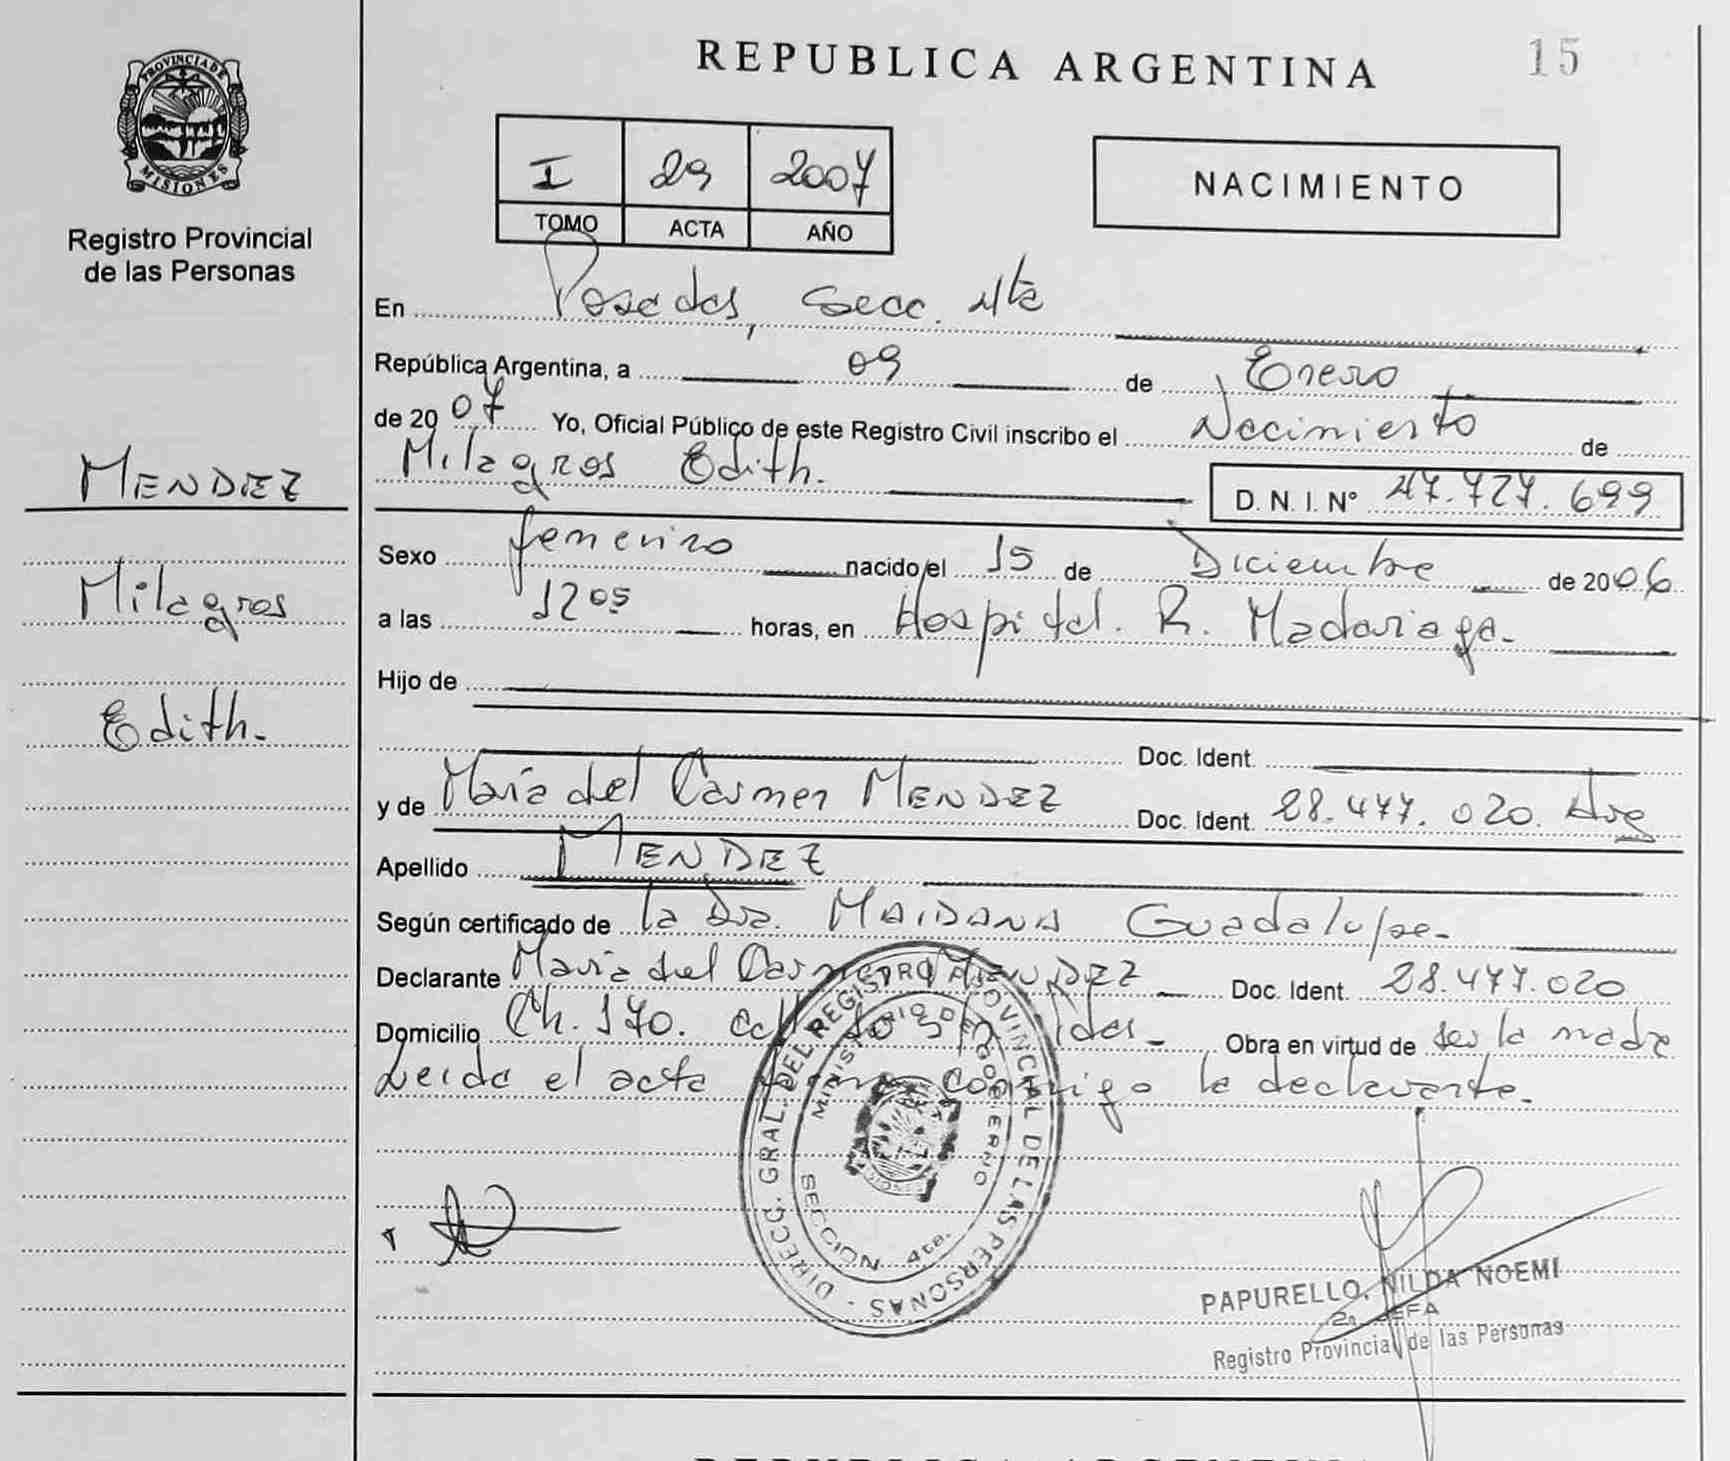 REPUBLICA ARGENTINA
15
PROVINCIA DE
MISIONES
Registro Provincial
de las Personas
I 29 2007
TOMO ACTA AÑO
NACIMIENTO
En Posadas, Secc. 4ta
República Argentina, a 09 de Enero
de 2007 Yo, Oficial Público de este Registro Civil inscribo el Nacimiento de
Milagros Edith. D. N. I. N° 47.727.699
MENDEZ
Milagros
Edith.
Sexo femenino nacido el 15 de Diciembre de 2006
a las 12 05 horas, en Hospital. R. Madariaga-
Hijo de
Doc. Ident.
y de María del Carmen MENDEZ Doc. Ident. 28.477.020. Arg
Apellido MENDEZ
Según certificado de la Dra. MAIDANA Guadalupe-
Declarante María del Carmen MENDEZ Doc. Ident. 28.477.020
Domicilio Ch. 170. Obra en virtud de ser la madre
Leida el acta firma conmigo la declarante-
DIRECC. GRAL. DEL REGISTRO PROVINCIAL DE LAS PERSONAS -
MINISTERIO DE GOBIERNO
SECCION 4ta.
PAPURELLO, NILDA NOEMI
Registro Provincial de las Personas